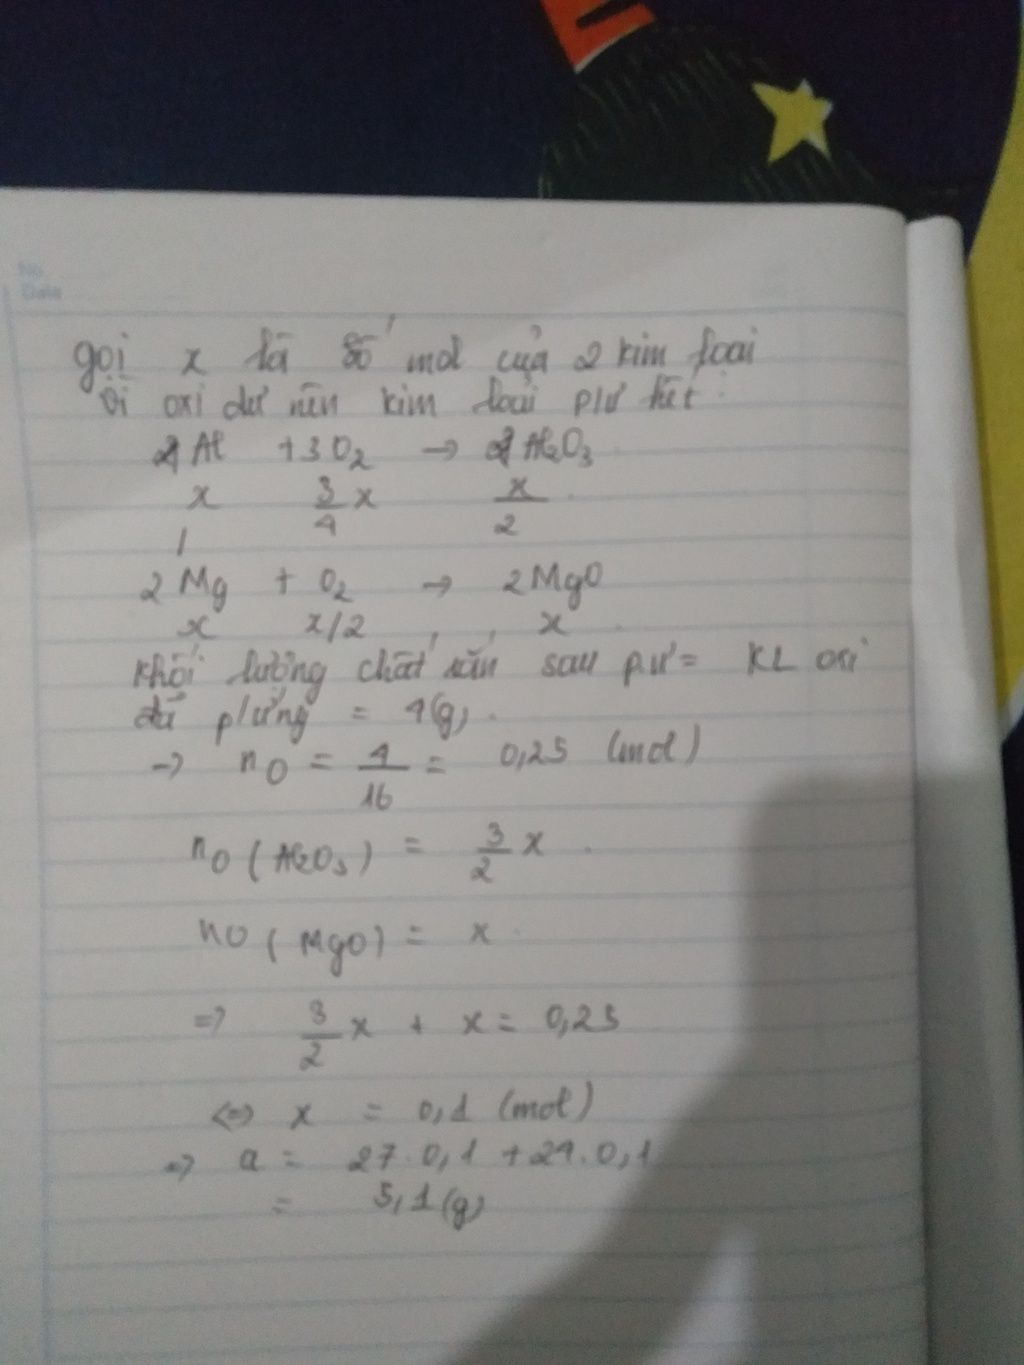 No
Date
gọi x là số mol của 2 kim loại
Vì oxi dư nên kim loại p/ư hết:
4Al + 3O₂ → 2Al₂O₃
x 3/4 x x/2
2Mg + O₂ → 2MgO
x x/2 x
khối lượng chất rắn sau p.ư = KL oxi
đã p/ứng = 4(g).
→ nO = 4/16 = 0,25 (mol)
nO (Al₂O₃) = 3/2 x
nO (MgO) = x
=> 3/2 x + x = 0,25
<=> x = 0,1 (mol)
=> a = 27.0,1 + 24.0,1
= 5,1(g)